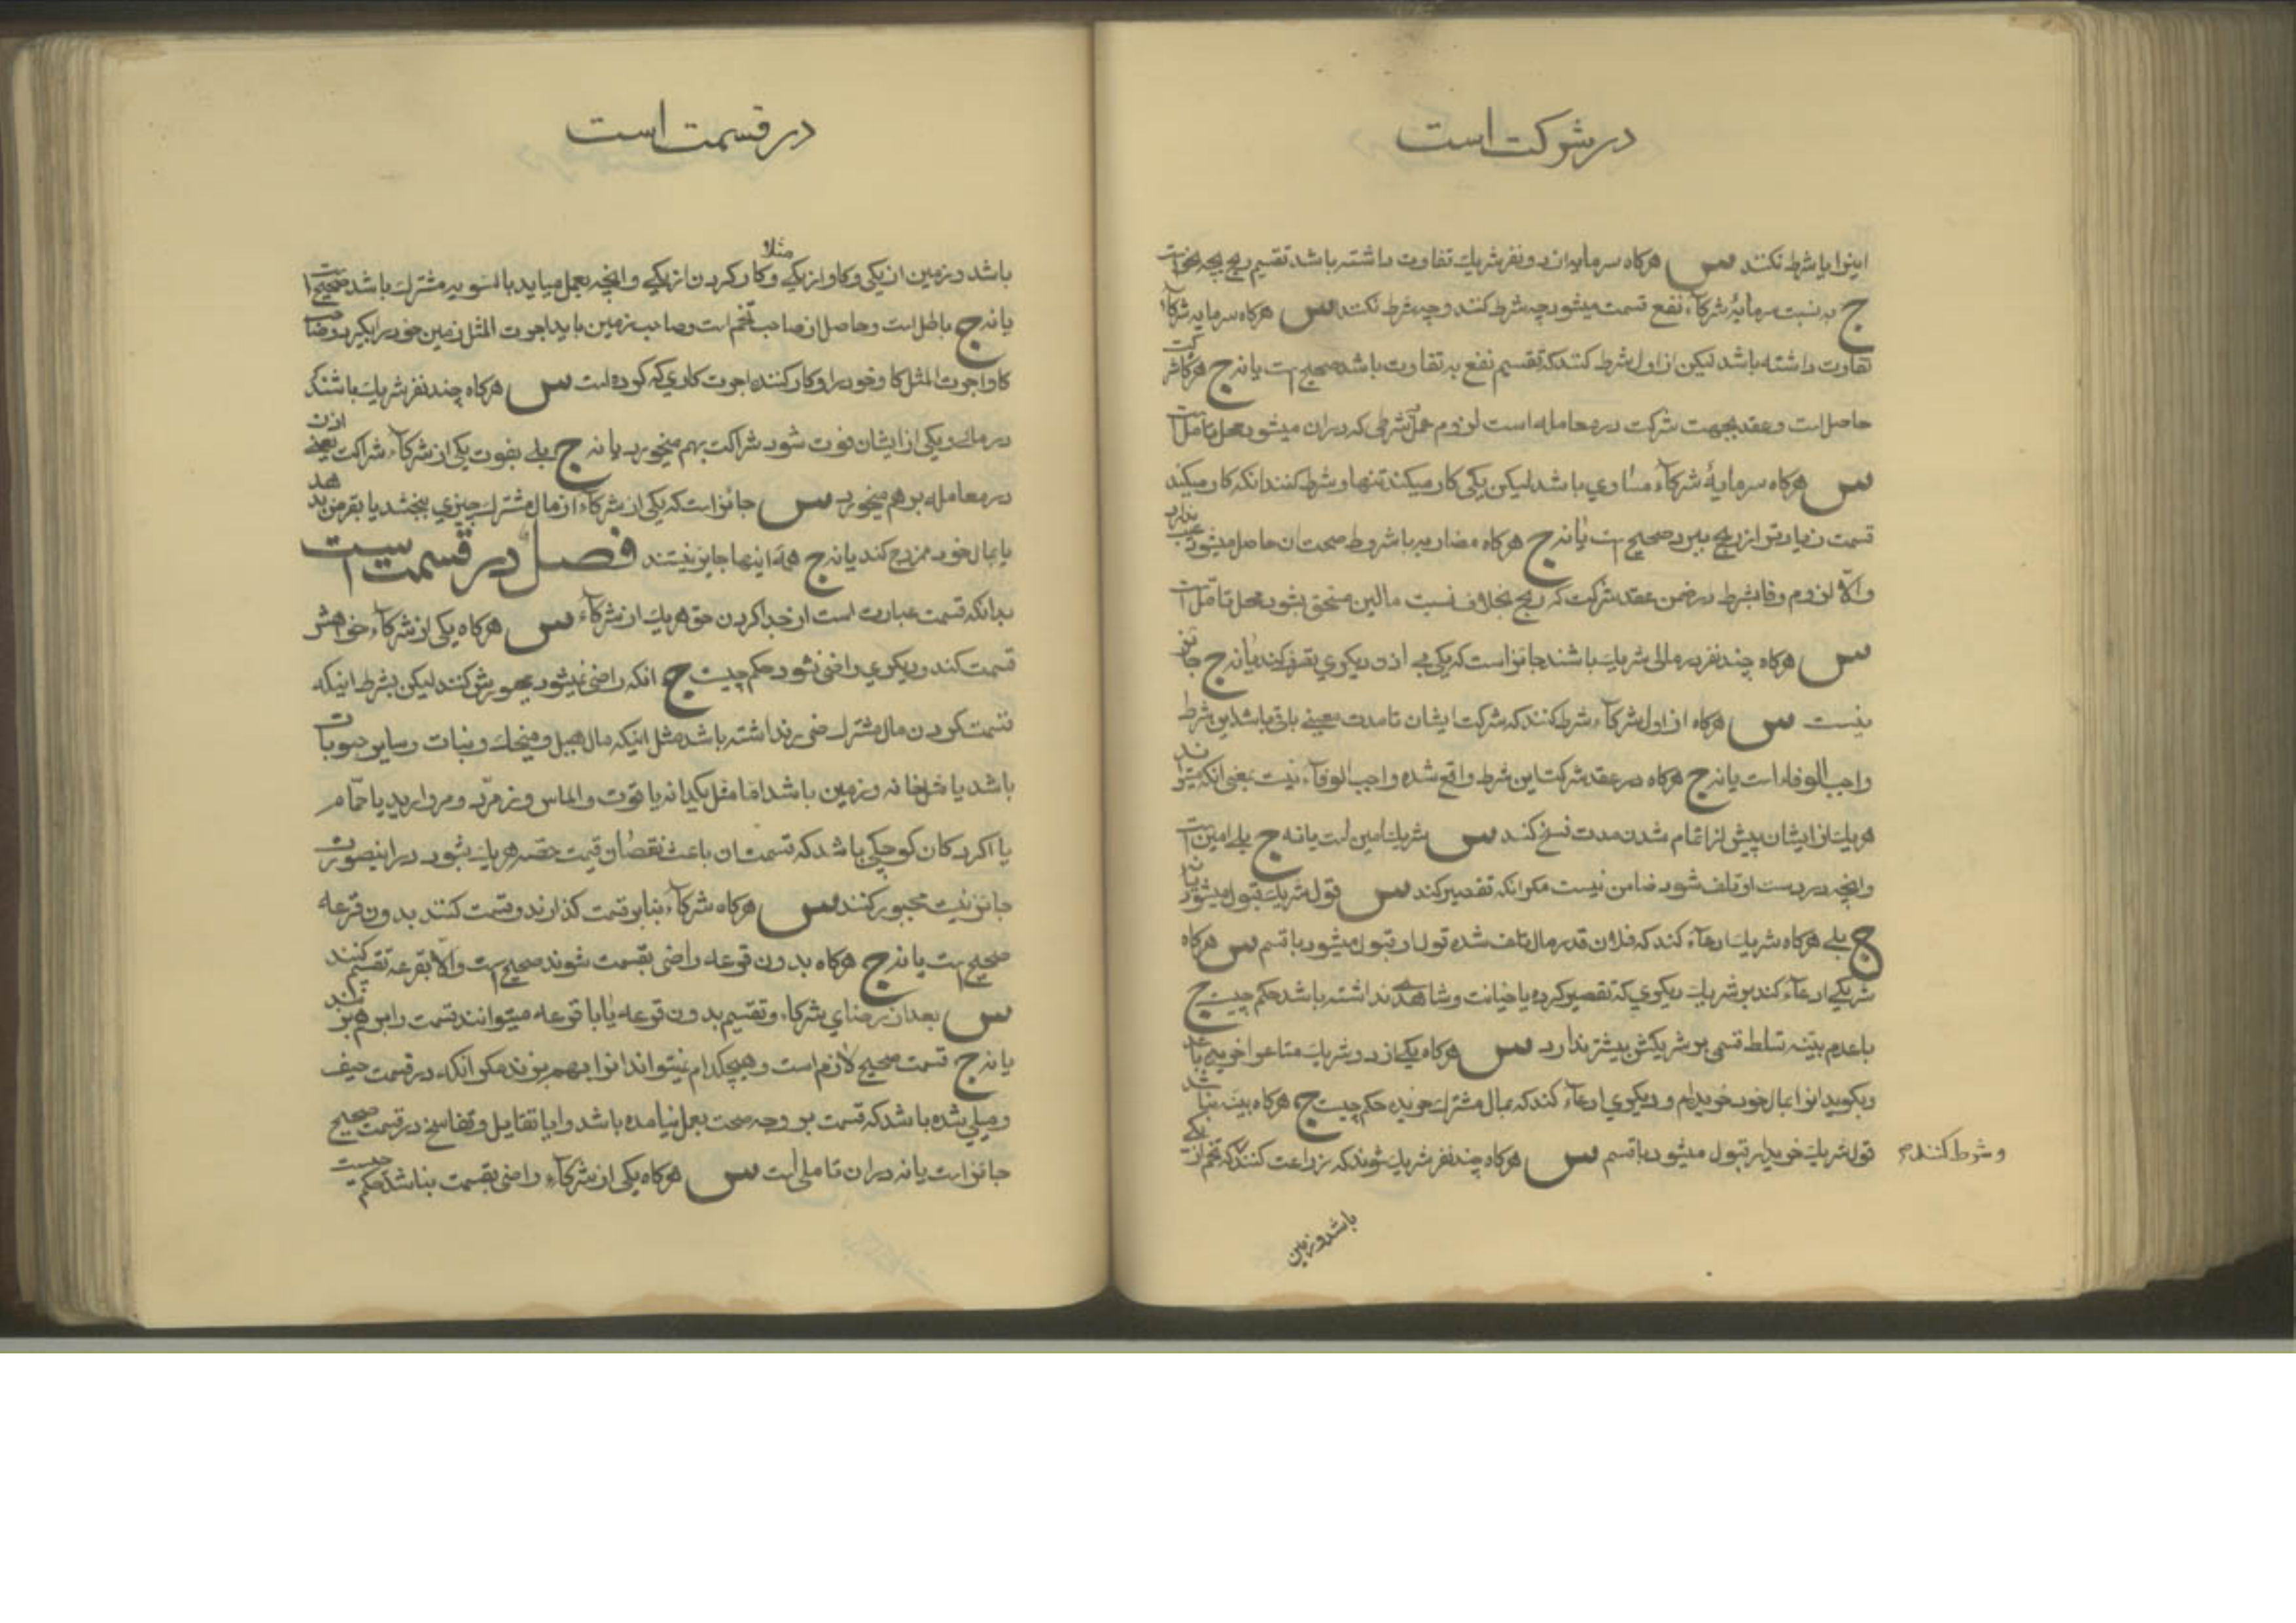 در شرکت است
اینرا یا شرط نکنند س هرکاه سرمایه از دو نفر شریك تفاوت داشته باشد تقسیم ربح بچه نحو است
ج به نسبت سرمایهٔ شرکآء نفع قسمت میشود چه شرط کنند و چه شرط نکنند س هرکاه سرمایه شرکآء
تفاوت داشته باشد لیکن از اول شرط کنند که تقسیم نفع به تفاوت باشد صحیح است یا نه ج هرکاه شرکت
حاصل است و عقد بجهت شرکت در معامله است لزوم عمل بشرطی که در ان میشود محل تامل است
س هرکاه سرمایهٔ شرکآء مساوي باشد لیکن یکی کار میکند تنها و شرط کنند انکه کار میکند
قسمت زیادتر از ربح ببرد صحیح است یا نه ج هرکاه مضاربه با شروط صحت ان حاصل میشود عیب ندارد
والّا لزوم وفا بشرط در ضمن عقد شرکت که ربح بخلاف نسبت مالین مستحق بشود محل تامّل است
س هرکاه چند نفر در مالی شریك باشند جائز است که یکی بی اذن دیکري تصرف کند یا نه ج جائز
نیست س هرکاه از اول شرکآء شرط کنند که شرکت ایشان تا مدت معینی باقی باشد این شرط
واجب الوفاء است یا نه ج هرکاه در عقد شرکت این شرط واقع شده واجب الوفآء نیست یعنی انکه میتواند
هر یك از ایشان پیش از اتمام شدن مدت فسخ کند س شریك امین است یا نه ج بلی امین است
و انچه در دست او تلف شود ضامن نیست مکر انکه تقصیر کند س قول شریك قبول میشود یا نه
ج بلی هرکاه شریك ادعآء کند که فلان قدر مال تلف شده قول او قبول میشود با قسم س هرکاه
شریکی ادعآء کند بر شریك دیکري که تقصیر کرده یا خیانت و شاهدی نداشته باشد حکم چیست ج
با عدم بیّنه تسلط قسمی بر شریکش بیشتر ندارد س هرکاه یکی از دو شریك متاعرا خریده باشد
و بکوید انرا بمال خود خریدم و دیکري ادعآء کند که بمال مشترك خریده حکم چیست ج هرکاه بینه نباشد
قول شریك خریدار قبول میشود با قسم س هرکاه چند نفر شریك شوند که زراعت کنند که تخم از یکی
و شرط کنند
باشد و زمین
در قسمت است
مثلا
باشد و زمین از یکی و کاو از یکی و کار کردن از یکی و انچه بعمل میاید بالسویه مشترك باشد صحیح است
یا نه ج باطل است و حاصل از صاحب تخم است و صاحب زمین باید اجرت المثل زمین خود را بکیرد و صاحب
کاو اجرت المثل کاو خود را و کار کننده اجرت کاري که کرده است س هرکاه چند نفر شریك باشند
در مالی و یکی از ایشان فوت شود شراکت بهم میخورد یا نه ج بلی بفوت یکی از شرکآء شراکت یعنی اذن
در معامله بر هم میخورد س جائز است که یکی از شرکآء از مال مشترك چیزي ببخشد یا بقرض بدهد
یا بمال خود ممزوج کند یا نه ج همهٔ اینها جایز نیستند فصل در قسمت است
بدانکه قسمت عبارت است از جدا کردن حق هر یك از شرکآء س هرکاه یکی از شرکآء خواهش
قسمت کند و دیکري راضی نشود حکم چیست ج انکه راضی نمیشود مجبورش کنند لیکن بشرط اینکه
قسمت کردن مال مشترك ضرر نداشته باشد مثل اینکه مال هبیل و منحك و نبات و سایر حبوبات
باشد یا خانه و زمین باشد اما مثل یکدانه یاقوت و الماس و زمرّد و مروارید یا حمّام
یا اکر دکان کوچکی باشد که قسمت ان باعث نقصان قیمت حصّه هر یك بشود در اینصورت
جائز نیست مجبور کنند س هرکاه شرکآء بنا بر قسمت کذارند و قسمت کنند بدون قرعه
صحیح است یا نه ج هرکاه بدون قرعه راضی بقسمت شوند صحیح است و الّا بقرعه تقسیم کنند
س بعد از رضاي شرکاء و تقسیم بدون قرعه یا با قرعه میتوانند قسمت را بر هم بزنند
یا نه ج قسمت صحیح لازم است و هیچکدام نمیتواند انرا بهم بزند مکر انکه در قسمت حیف
و میلی شده باشد که قسمت بر وجه صحت بعمل نیامده باشد و ایا تقایل و تفاسخ در قسمت صحیح
جائز است یا نه در ان تاملی است س هرکاه یکی از شرکآء راضی بقسمت نباشد حکم چیست